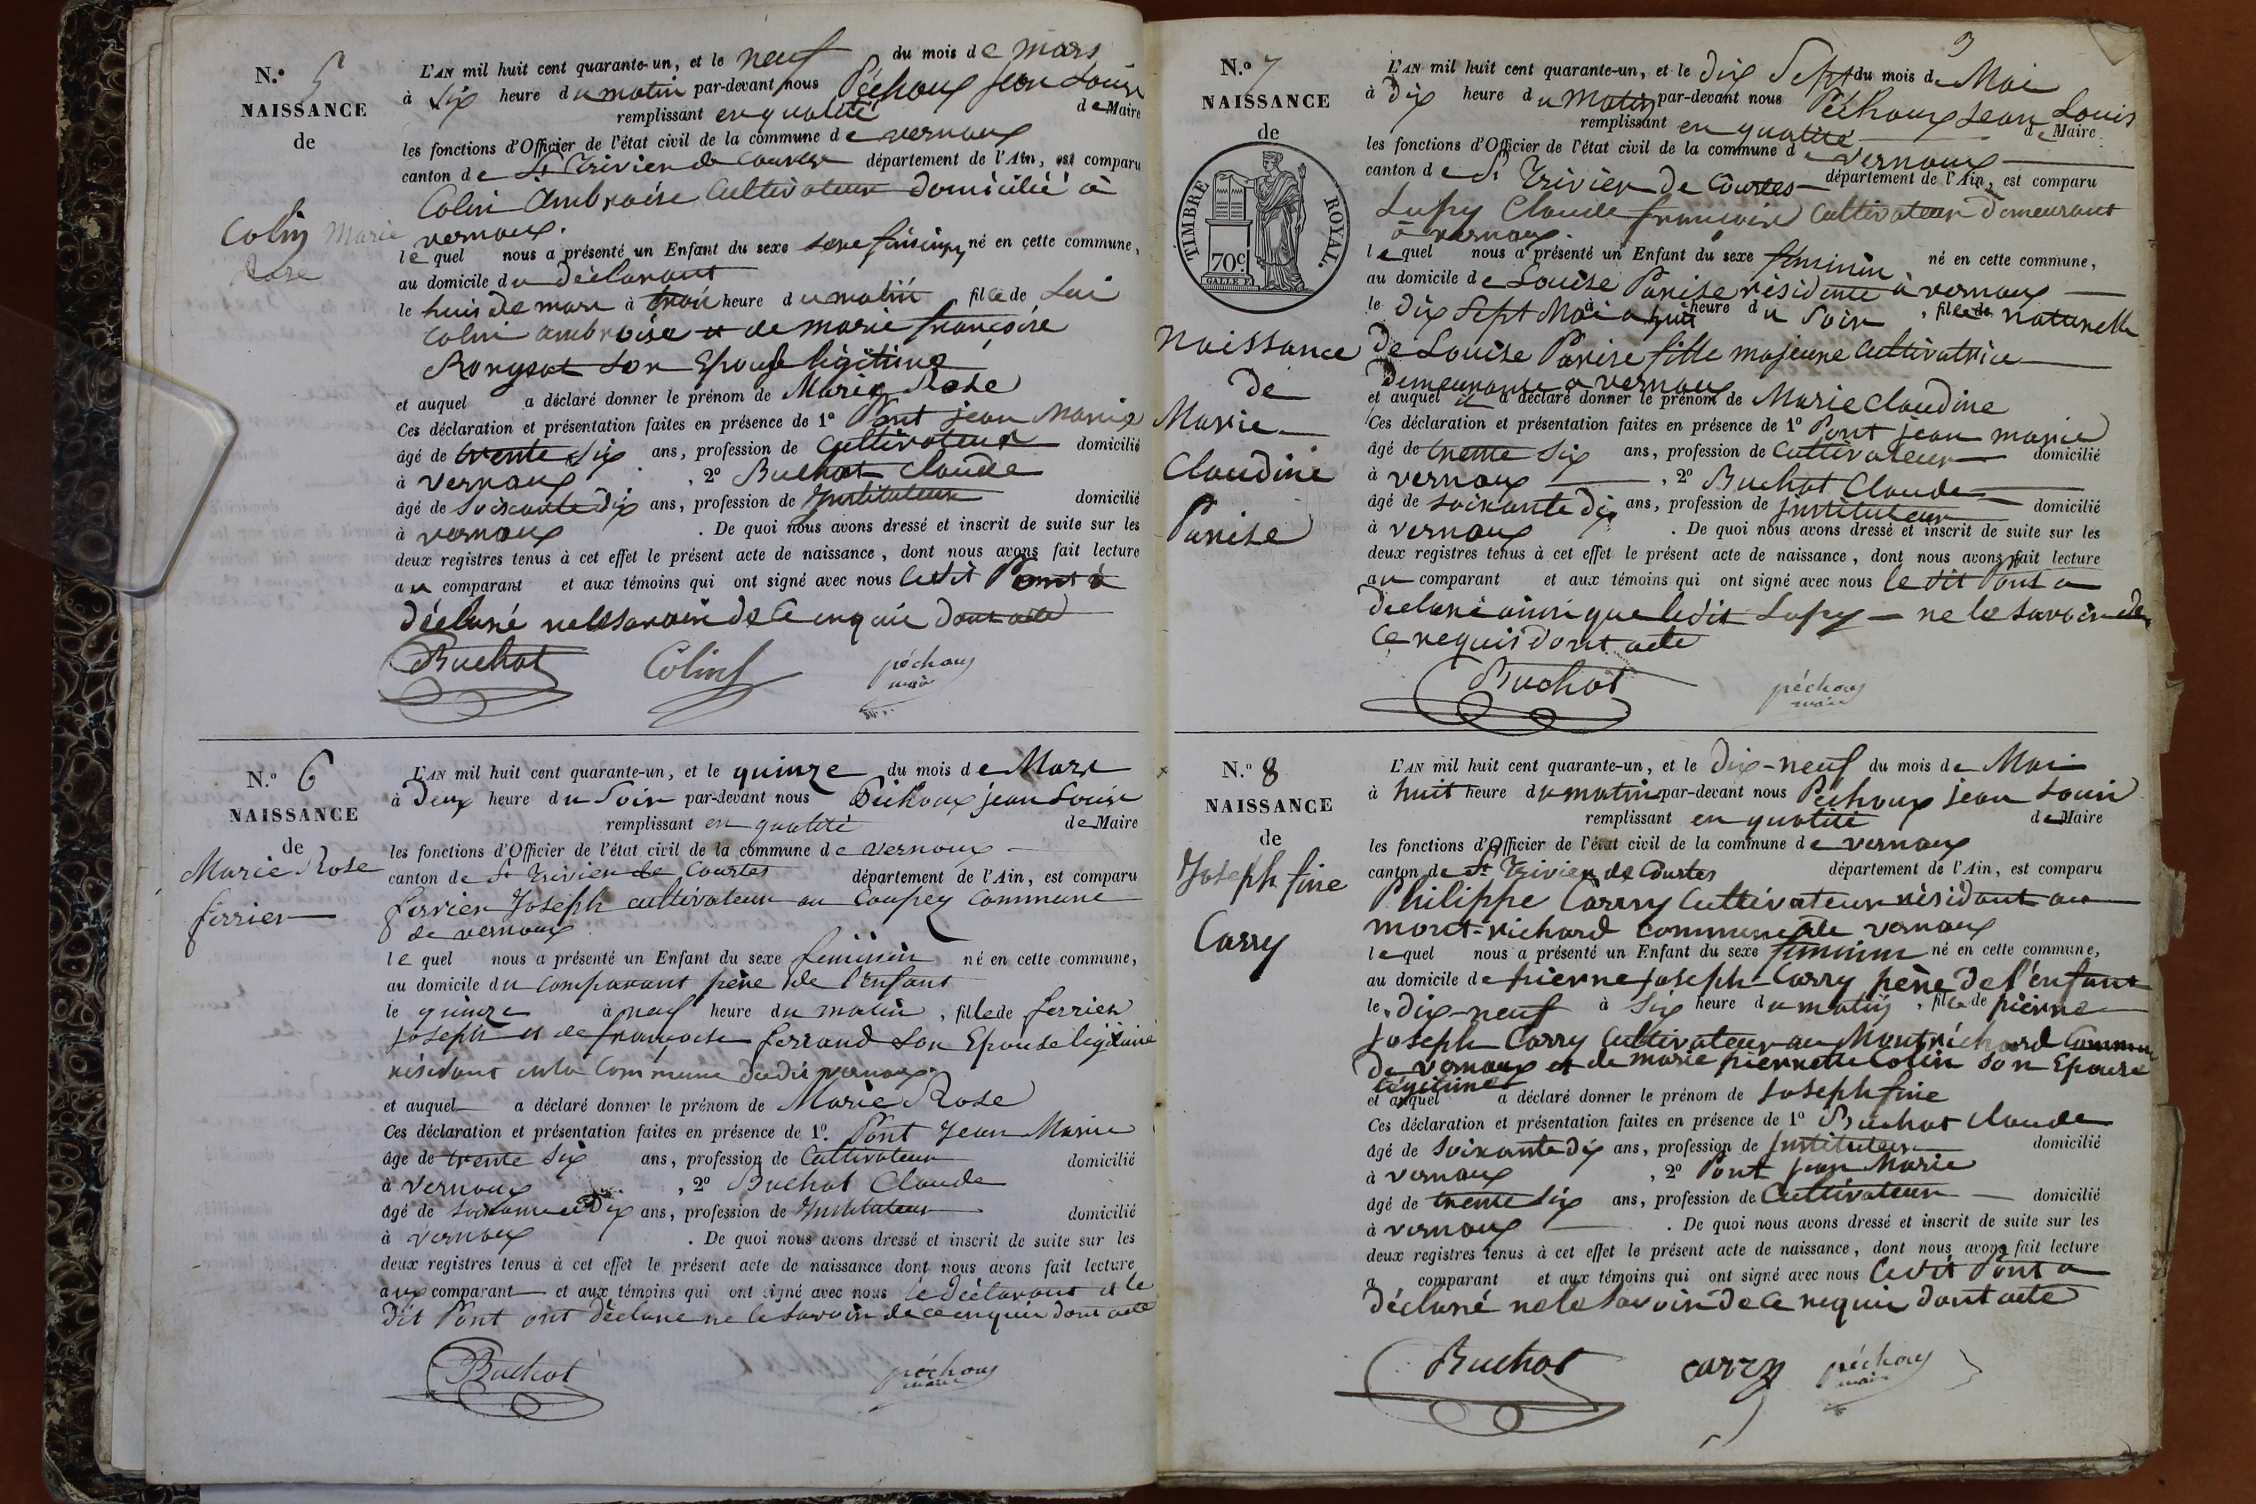 N.° 5
NAISSANCE
de
Colin Marie
Rose
L'AN mil huit cent quarante-un, et le neuf du mois de mars
à dix heure du matin par-devant nous Péchoux Jean Louis
remplissant en qualité de Maire
les fonctions d'Officier de l'état civil de la commune de vernoux
canton de St Trivier de Courtes département de l'Ain, est comparu
Colin Ambroise Cultivateur domicilié à
vernoux.
le quel nous a présenté un Enfant du sexe né en cette commune,
au domicile du déclarant
le huit de mars à trois heure du matin, fille de Lui
Colin ambroise et de marie françoise
son Epouse légitime
et auquel a déclaré donner le prénom de Marie Rose
Ces déclaration et présentation faites en présence de 1° Pont jean Marie
âgé de trente six ans, profession de Cultivateur domicilié
à vernoux, 2° Buchot Claude
âgé de soixante dix ans, profession de Instituteur domicilié
à vernoux. De quoi nous avons dressé et inscrit de suite sur les
deux registres tenus à cet effet le présent acte de naissance, dont nous avons fait lecture
au comparant et aux témoins qui ont signé avec nous ledit Pont a
déclaré ne le savoir de ce enquis dont acte
Buchot Colin péchoux
maire
N.° 6
NAISSANCE
de
Marie Rose
ferrier
L'AN mil huit cent quarante-un, et le quinze du mois de Mars
à Deux heure du Soir par-devant nous Péchoux jean Louis
remplissant en qualité de Maire
les fonctions d'Officier de l'état civil de la commune de vernoux
canton de St Trivier de Courtes département de l'Ain, est comparu
ferrier Joseph cultivateur au Coupey Commune
de vernoux
le quel nous a présenté un Enfant du sexe féminin né en cette commune,
au domicile du comparant père de l'enfant
le quinze à neuf heure du matin, fille de ferrier
joseph et de françoise ferrand son Epouse légitime
résidant en la Commune dudit vernoux.
et auquel a déclaré donner le prénom de Marie Rose
Ces déclaration et présentation faites en présence de 1°. Pont Jean Marie
âgé de trente six ans, profession de Cultivateur domicilié
à vernoux, 2° Buchot Claude
âgé de soixante et Dix ans, profession de Instituteur domicilié
à vernoux. De quoi nous avons dressé et inscrit de suite sur les
deux registres tenus à cet effet le présent acte de naissance dont nous avons fait lecture
aux comparant et aux témoins qui ont signé avec nous le déclarant et le
dit Pont ont déclare ne le savoir de ce enquis dont acte
Buchot péchoux
maire
3
N.° 7
NAISSANCE
de
TIMBRE ROYAL.
70c
Naissance
de
Marie
Claudine
Panise
L'AN mil huit cent quarante-un, et le dix Sept du mois de Mai
à dix heure du Matin par-devant nous Péchoux Jean Louis
remplissant en qualité de Maire
les fonctions d'Officier de l'état civil de la commune de vernoux
canton de St Trivier de Courtes département de l'Ain, est comparu
Lupy Claude françois Cultivateur demeurant
à vernoux.
le quel nous a présenté un Enfant du sexe féminin, né en cette commune,
au domicile de Louise Panise résidente à vernoux
le Dix Sept Mai à huit heure du Soir, fille de naturelle
de Louise Panise fille majeure Cultivatrice
demeurante a vernoux
et auquel il a déclaré donner le prénom de Marie Claudine
Ces déclaration et présentation faites en présence de 1° Pont jean marie
âgé de trente six ans, profession de Cultivateur domicilié
à vernoux, 2° Buchot Claude
âgé de soixante dix ans, profession de instituteur domicilié
à vernoux. De quoi nous avons dressé et inscrit de suite sur les
deux registres tenus à cet effet le présent acte de naissance, dont nous avons fait lecture
au comparant et aux témoins qui ont signé avec nous le dit Pont a
déclaré ainsi que ledit Lupy ne le savoir de
ce requis dont acte
Buchot péchoux
maire
N.° 8
NAISSANCE
de
Joseph fine
Carry
L'AN mil huit cent quarante-un, et le dix-neuf du mois de Mai
à huit heure du matin par-devant nous Péchoux jean Louis
remplissant en qualité de Maire
les fonctions d'Officier de l'état civil de la commune de vernoux
canton de St Trivier de Courtes département de l'Ain, est comparu
Philippe Carry Cultivateur résidant au
mont-richard commune de vernoux
le quel nous a présenté un Enfant du sexe féminin né en cette commune,
au domicile de pierre joseph Carry père de l'enfant
le dix-neuf à six heure du matin, fille de pierre
joseph Carry Cultivateur au Montrichard Commune
de vernoux et de marie pierrette Colin son Epouse
légitime
et auquel a déclaré donner le prénom de Joseph fine
Ces déclaration et présentation faites en présence de 1° Buchot Claude
âgé de soixante dix ans, profession de Instituteur domicilié
à vernoux, 2° Pont jean Marie
âgé de trente six ans, profession de Cultivateur domicilié
à vernoux. De quoi nous avons dressé et inscrit de suite sur les
deux registres tenus à cet effet le présent acte de naissance, dont nous avons fait lecture
a comparant et aux témoins qui ont signé avec nous ledit Pont a
déclaré ne le savoir de ce requis dont acte
Buchot carry péchoux
maire